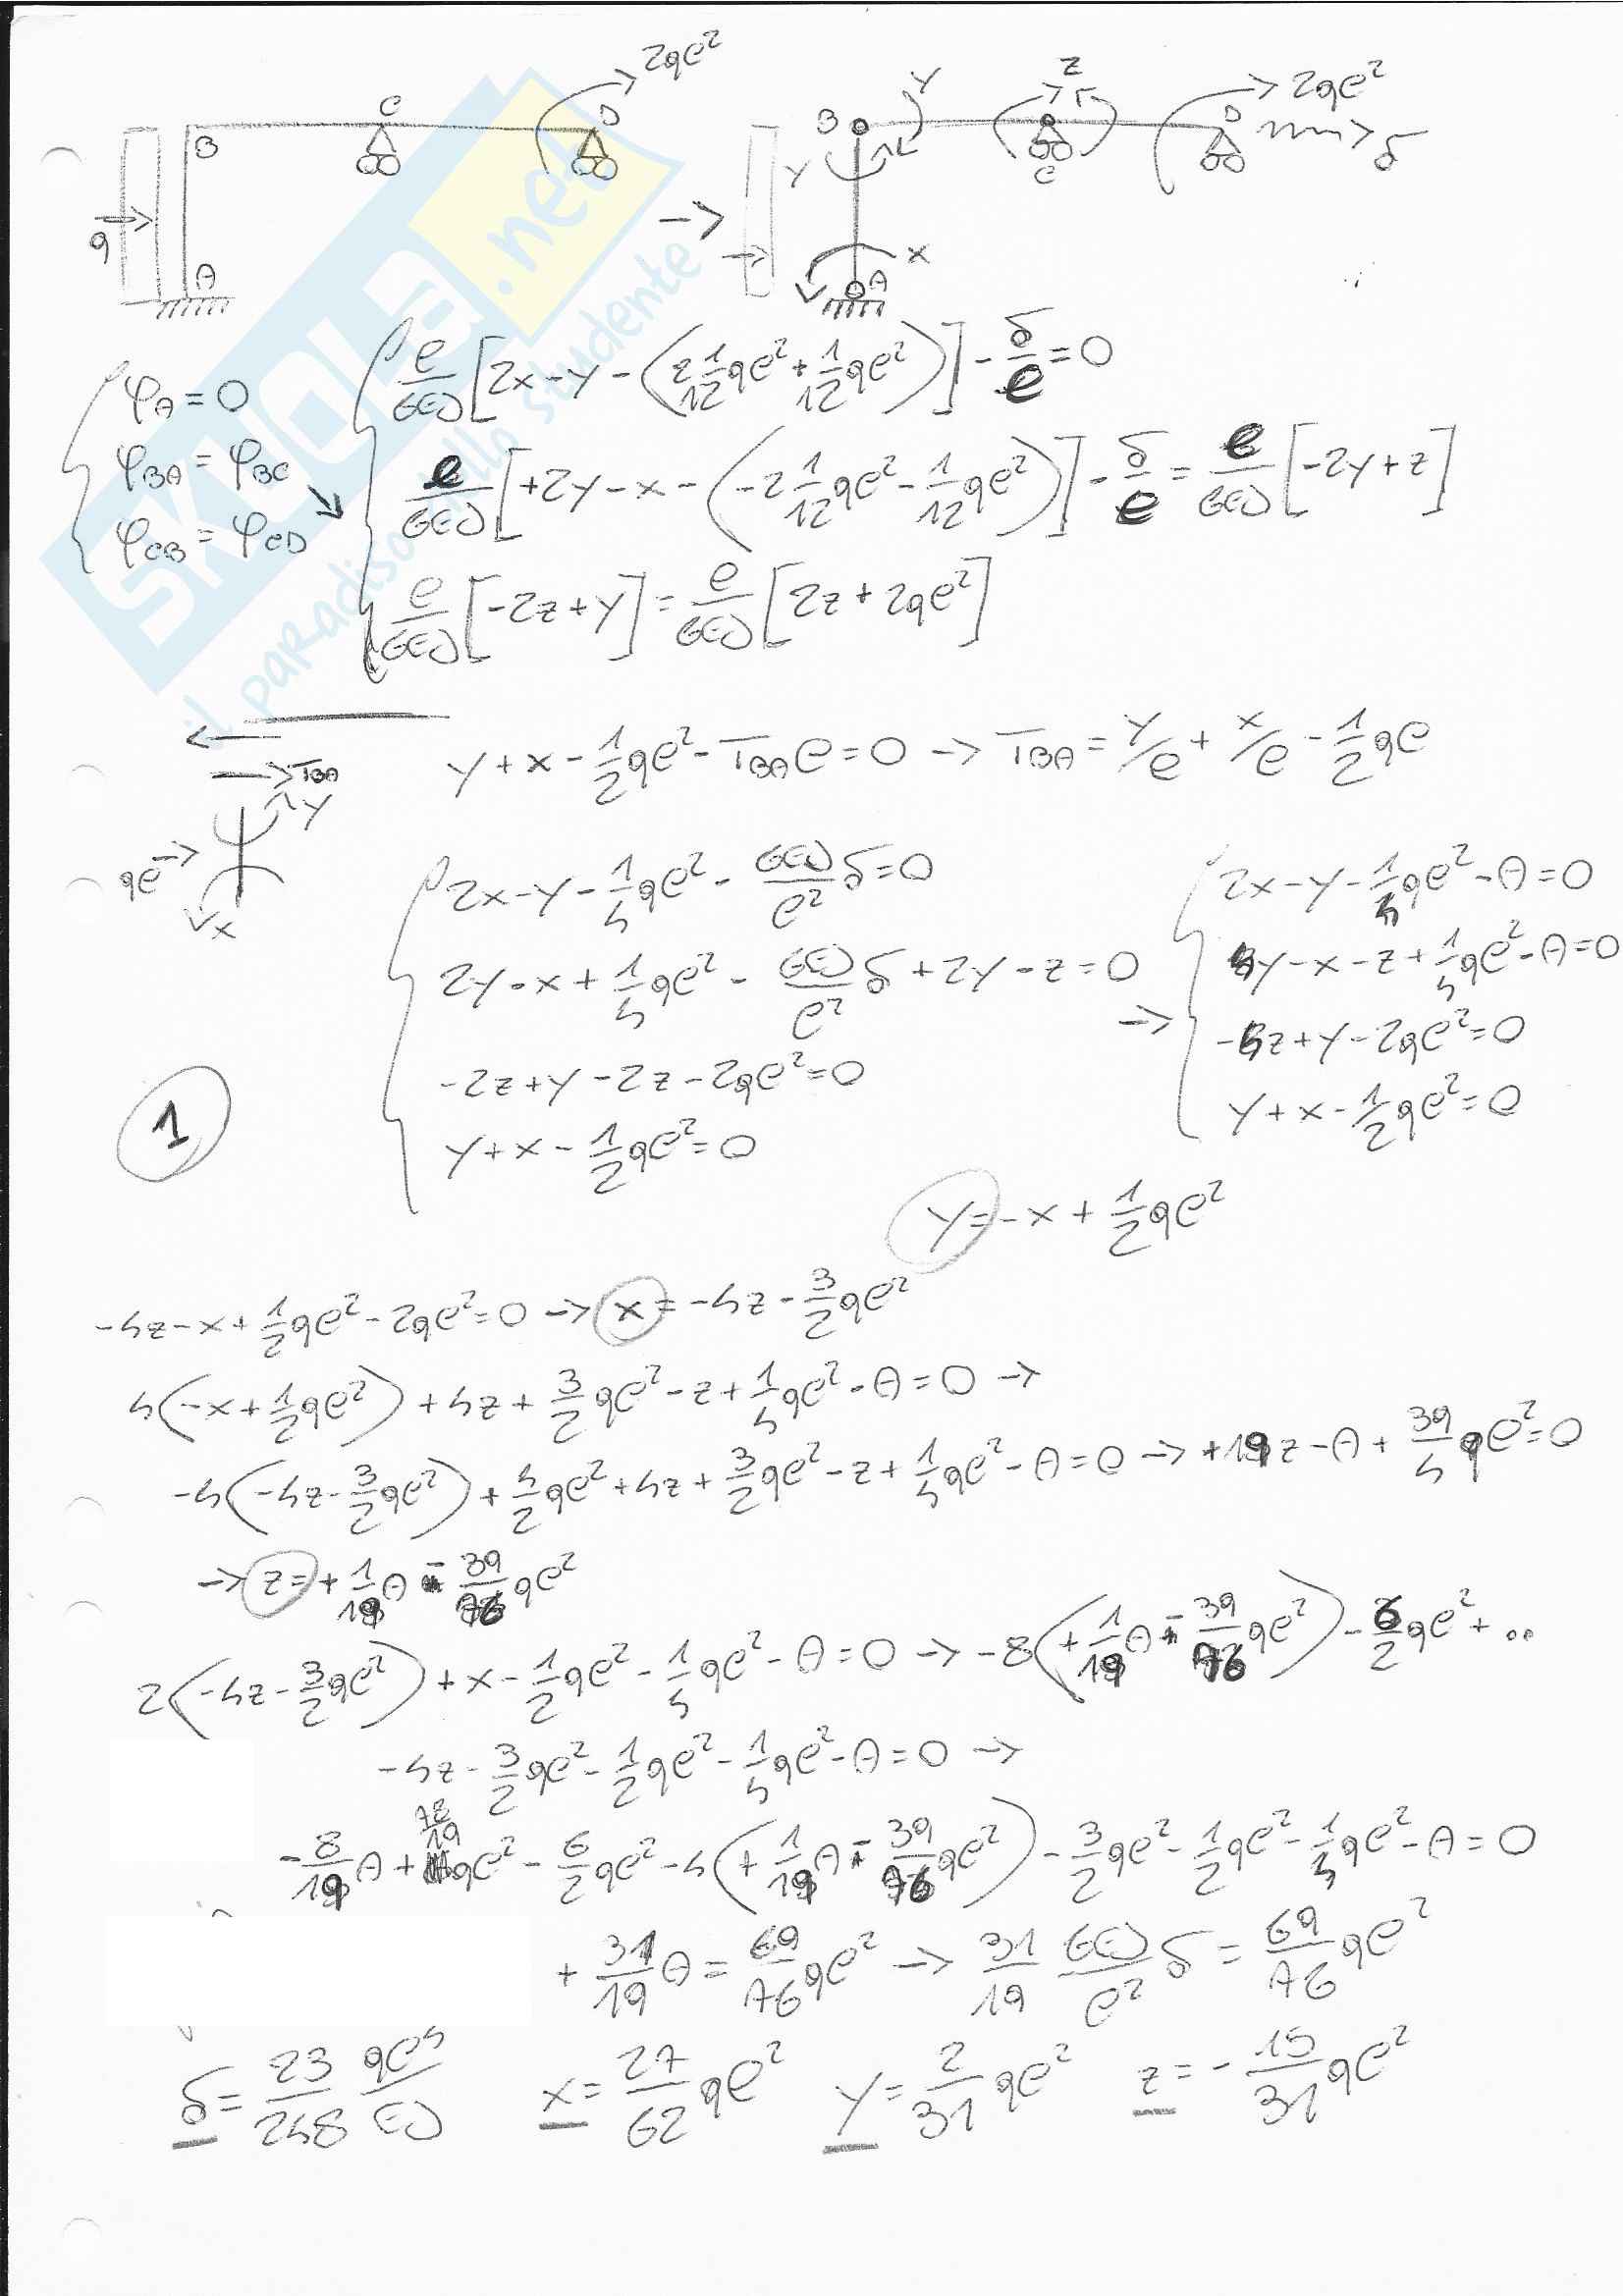 2qℓ²
B C D
q
A
B Y Z C D 2qℓ² δ
Y X A
φA = 0
φBA = φBC
φCB = φCD
ℓ/6EJ [2x - y - (2 1/12 qℓ² + 1/12 qℓ²)] - δ/ℓ = 0
ℓ/6EJ [+2y - x - (-2 1/12 qℓ² - 1/12 qℓ²)] - δ/ℓ = ℓ/6EJ [-2y + z]
ℓ/6EJ [-2z + y] = ℓ/6EJ [2z + 2qℓ²]
y + x - 1/2 qℓ² - TBA ℓ = 0 → TBA = y/ℓ + x/ℓ - 1/2 qℓ
TBA
y
qℓ
x
2x - y - 1/4 qℓ² - 6EJ/ℓ² δ = 0
2y - x + 1/4 qℓ² - 6EJ/ℓ² δ + 2y - z = 0
-2z + y - 2z - 2qℓ² = 0
y + x - 1/2 qℓ² = 0
→ 2x - y - 1/4 qℓ² - A = 0
4y - x - z + 1/4 qℓ² - A = 0
-4z + y - 2qℓ² = 0
y + x - 1/2 qℓ² = 0
1
y = -x + 1/2 qℓ²
-4z - x + 1/2 qℓ² - 2qℓ² = 0 → x = -4z - 3/2 qℓ²
4(-x + 1/2 qℓ²) + 4z + 3/2 qℓ² - z + 1/4 qℓ² - A = 0 →
-4(-4z - 3/2 qℓ²) + 4/2 qℓ² + 4z + 3/2 qℓ² - z + 1/4 qℓ² - A = 0 → +19z - A + 39/4 qℓ² = 0
→ z = + 1/19 A - 39/76 qℓ²
2(-4z - 3/2 qℓ²) + x - 1/2 qℓ² - 1/4 qℓ² - A = 0 → -8(+ 1/19 A - 39/76 qℓ²) - 6/2 qℓ² + ..
-4z - 3/2 qℓ² - 1/2 qℓ² - 1/4 qℓ² - A = 0 →
- 8/19 A + 78/19 qℓ² - 6/2 qℓ² - 4(+ 1/19 A - 39/76 qℓ²) - 3/2 qℓ² - 1/2 qℓ² - 1/4 qℓ² - A = 0
+ 31/19 A = 69/76 qℓ² → 31/19 6EJ/ℓ² δ = 69/76 qℓ²
δ = 23/248 qℓ⁴/EJ x = 27/62 qℓ² y = 2/31 qℓ² z = - 15/31 qℓ²
SKUOLA.net
il paradiso dello studente